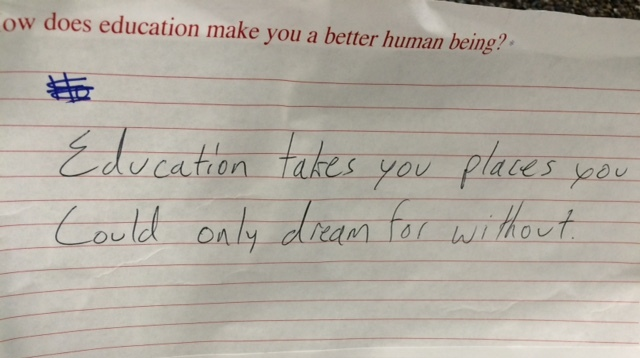 ow does education make you a better human being?
Education takes you places you
Could only dream for without.